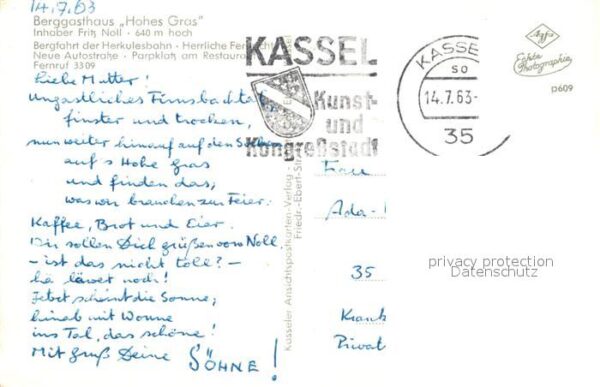 14.7.63
Berggasthaus „Hohes Gras"
Inhaber Fritz Noll · 640 m hoch
Bergfahrt der Herkulesbahn · Herrliche
Neue Autostraße · Parkplatz am Restaur
Fernruf 3309
Liebe Mutter!
ungastliches Firnsbachtal,
finster und trocken,
nun weiter hinauf auf den
auf's Hohe Gras
und finden das,
was wir brauchen zur Feier.
Kaffee, Brot und Eier.
Dir sollen Dich grüßen von Noll.
- ist das nicht toll? -
he läwet noch!
Jetzt scheint die Sonne,
hinab mit Wonne
ins Tal, das schöne!
Mit Gruß Deine SÖHNE!
Kasseler Ansichtspostkarten-Verlag
Friedr.-Ebert-Str
KASSEL
Kunst-
und
Kongreßstadt
KASSE
so
14.7.63-
35
Agfa
Echte
Photographie
p609
Frau
Ada-
35
Krank
Privat
privacy protection
Datenschutz